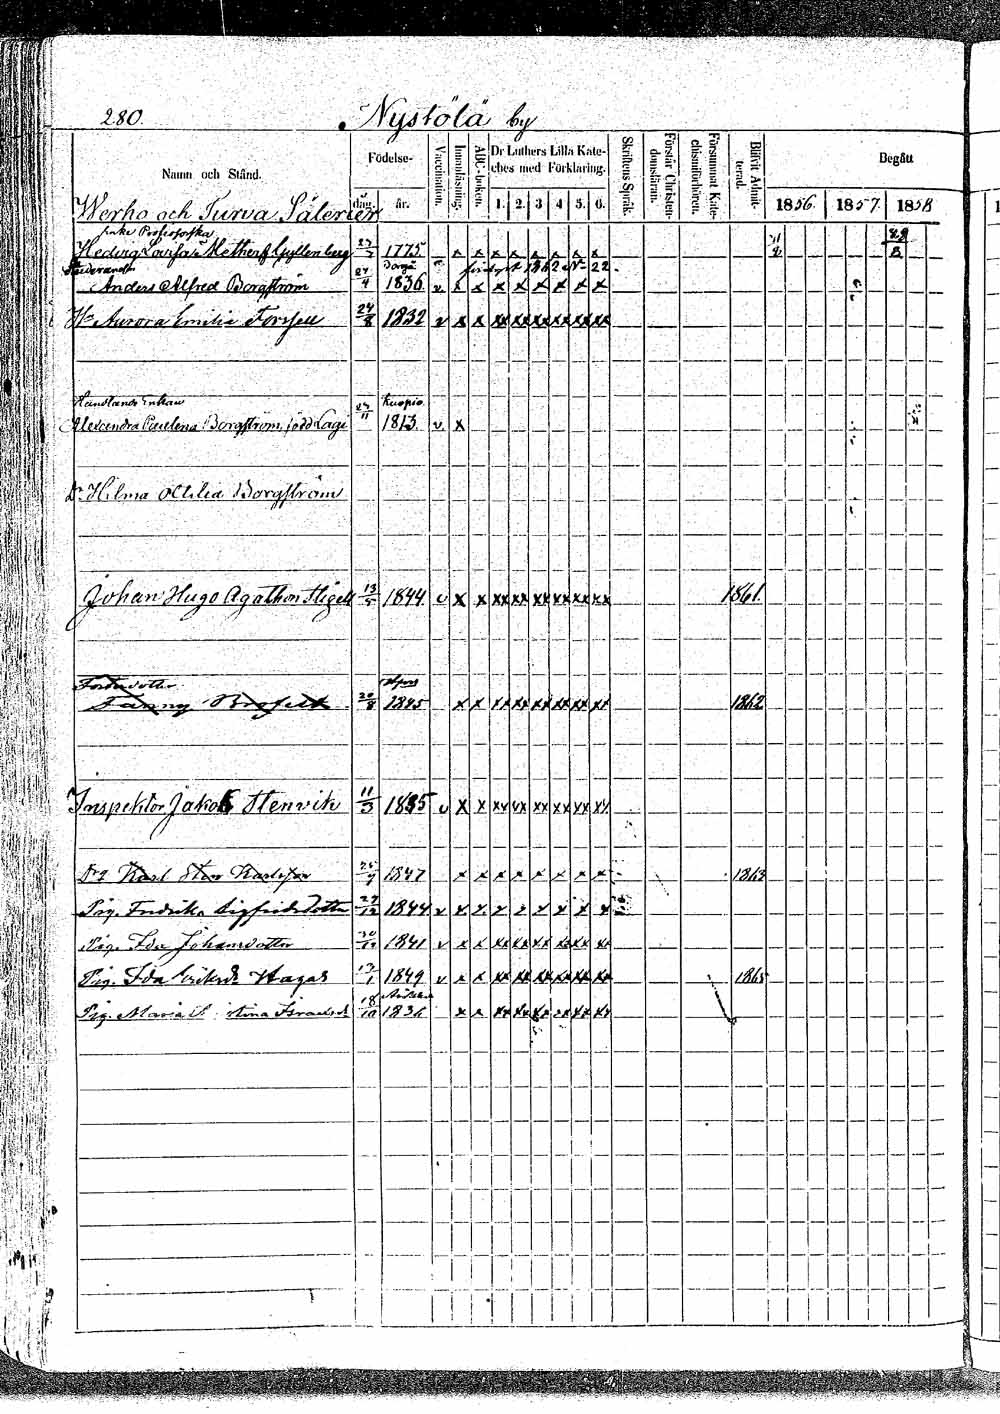 280. Nystölä by
Namn och Stånd. Födelse- dag. år. Vaccination. Innanläsning. ABC-boken. Dr Luthers Lilla Kateches med Förklaring. 1. 2. 3 4 5. 6. Skriftens Språk. Förstår Christendomsläran. Försummat Katechismiförhören. Blifvit Admitterad. Begått 1856. 1857. 1858
Werho och Turva Säterier
Enke Professorska
Hedvig Lovisa Mether f. Gyllenberg 1775 x x x x x x x
Borgå 1862 No 22
Anders Alfred Borgström 27/4 1836 v x x x x x x x x
Hu Aurora Emilia Forssell 24/8 1832 v x x xx xx xx xx xx xx
Handlande Enkan Kuopio
Alexandra Paulena Borgström född Lagi 1813 v x
Dr Hilma Otilia Borgström
Johan Hugo Agathon Stigell 13/5 1844 v x x xx xx xx xx xx xx 1861.
Fosterdotter
Fanny Brofelt 20/8 1845 x x xx xx xx xx xx xx 1862
Inspektor Jakob Stenvik 11/3 1835 v x x xx xx xx xx xx xx
Dr Karl Sten Karlsson 1847 x x x x x x x x 1863
Pig. Fredrika Sigfridsdotter 29/12 1844 v x x x x x x x x
Pig. Ida Johansdotter 1841 v x x xx xx xx xx xx xx
Pig. Ida Eriksd. Hagas 1849 v x x xx xx xx xx xx xx 1865
Pig. Maria Israelsd 18/10 1836 x x xx xx xx xx xx xx